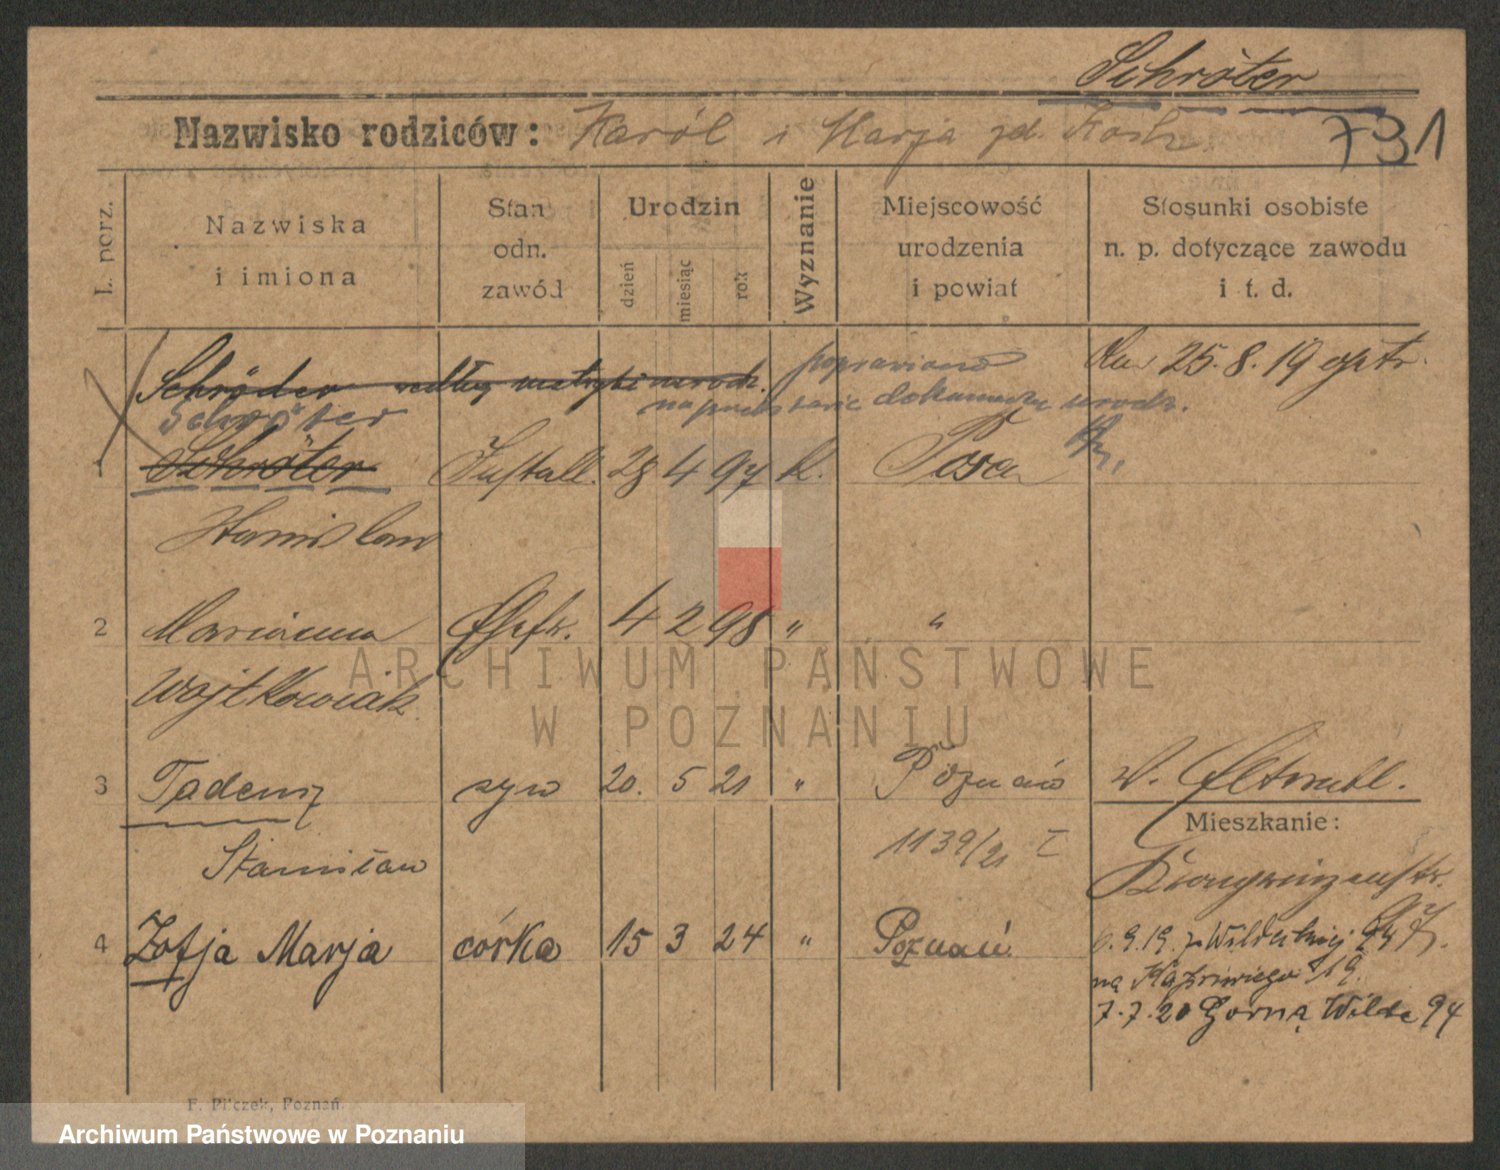 Schröter
Nazwisko rodziców: Karól i Marja zd.
731
L. porz.
Nazwiska
i imiona
Stan
odn.
zawód
Urodzin
dzień
miesiąc
rok
Wyznanie
Miejscowość
urodzenia
i powiat
Stosunki osobiste
n. p. dotyczące zawodu
i t. d.
Schröder według metryki urodz. poprawiono 25.8.19
Schröter na podstawie dokumentu urodz.
1 Schröter Install. 28 4 97 k. Posen
Stanislaw
2 Marianna Ehefr. 4 2 98 " "
Wojtkowiak
3 Tadeusz syn 20. 5 21 " Poznań W.
Mieszkanie:
Stanisław 1139/21 I
4 Zofja Marja córka 15 3 24 " Poznań
6.9.19.
na 19.
7.7.20 Górna Wilda 94
F. Pilczek, Poznań.
ARCHIWUM PAŃSTWOWE
W POZNANIU
Archiwum Państwowe w Poznaniu